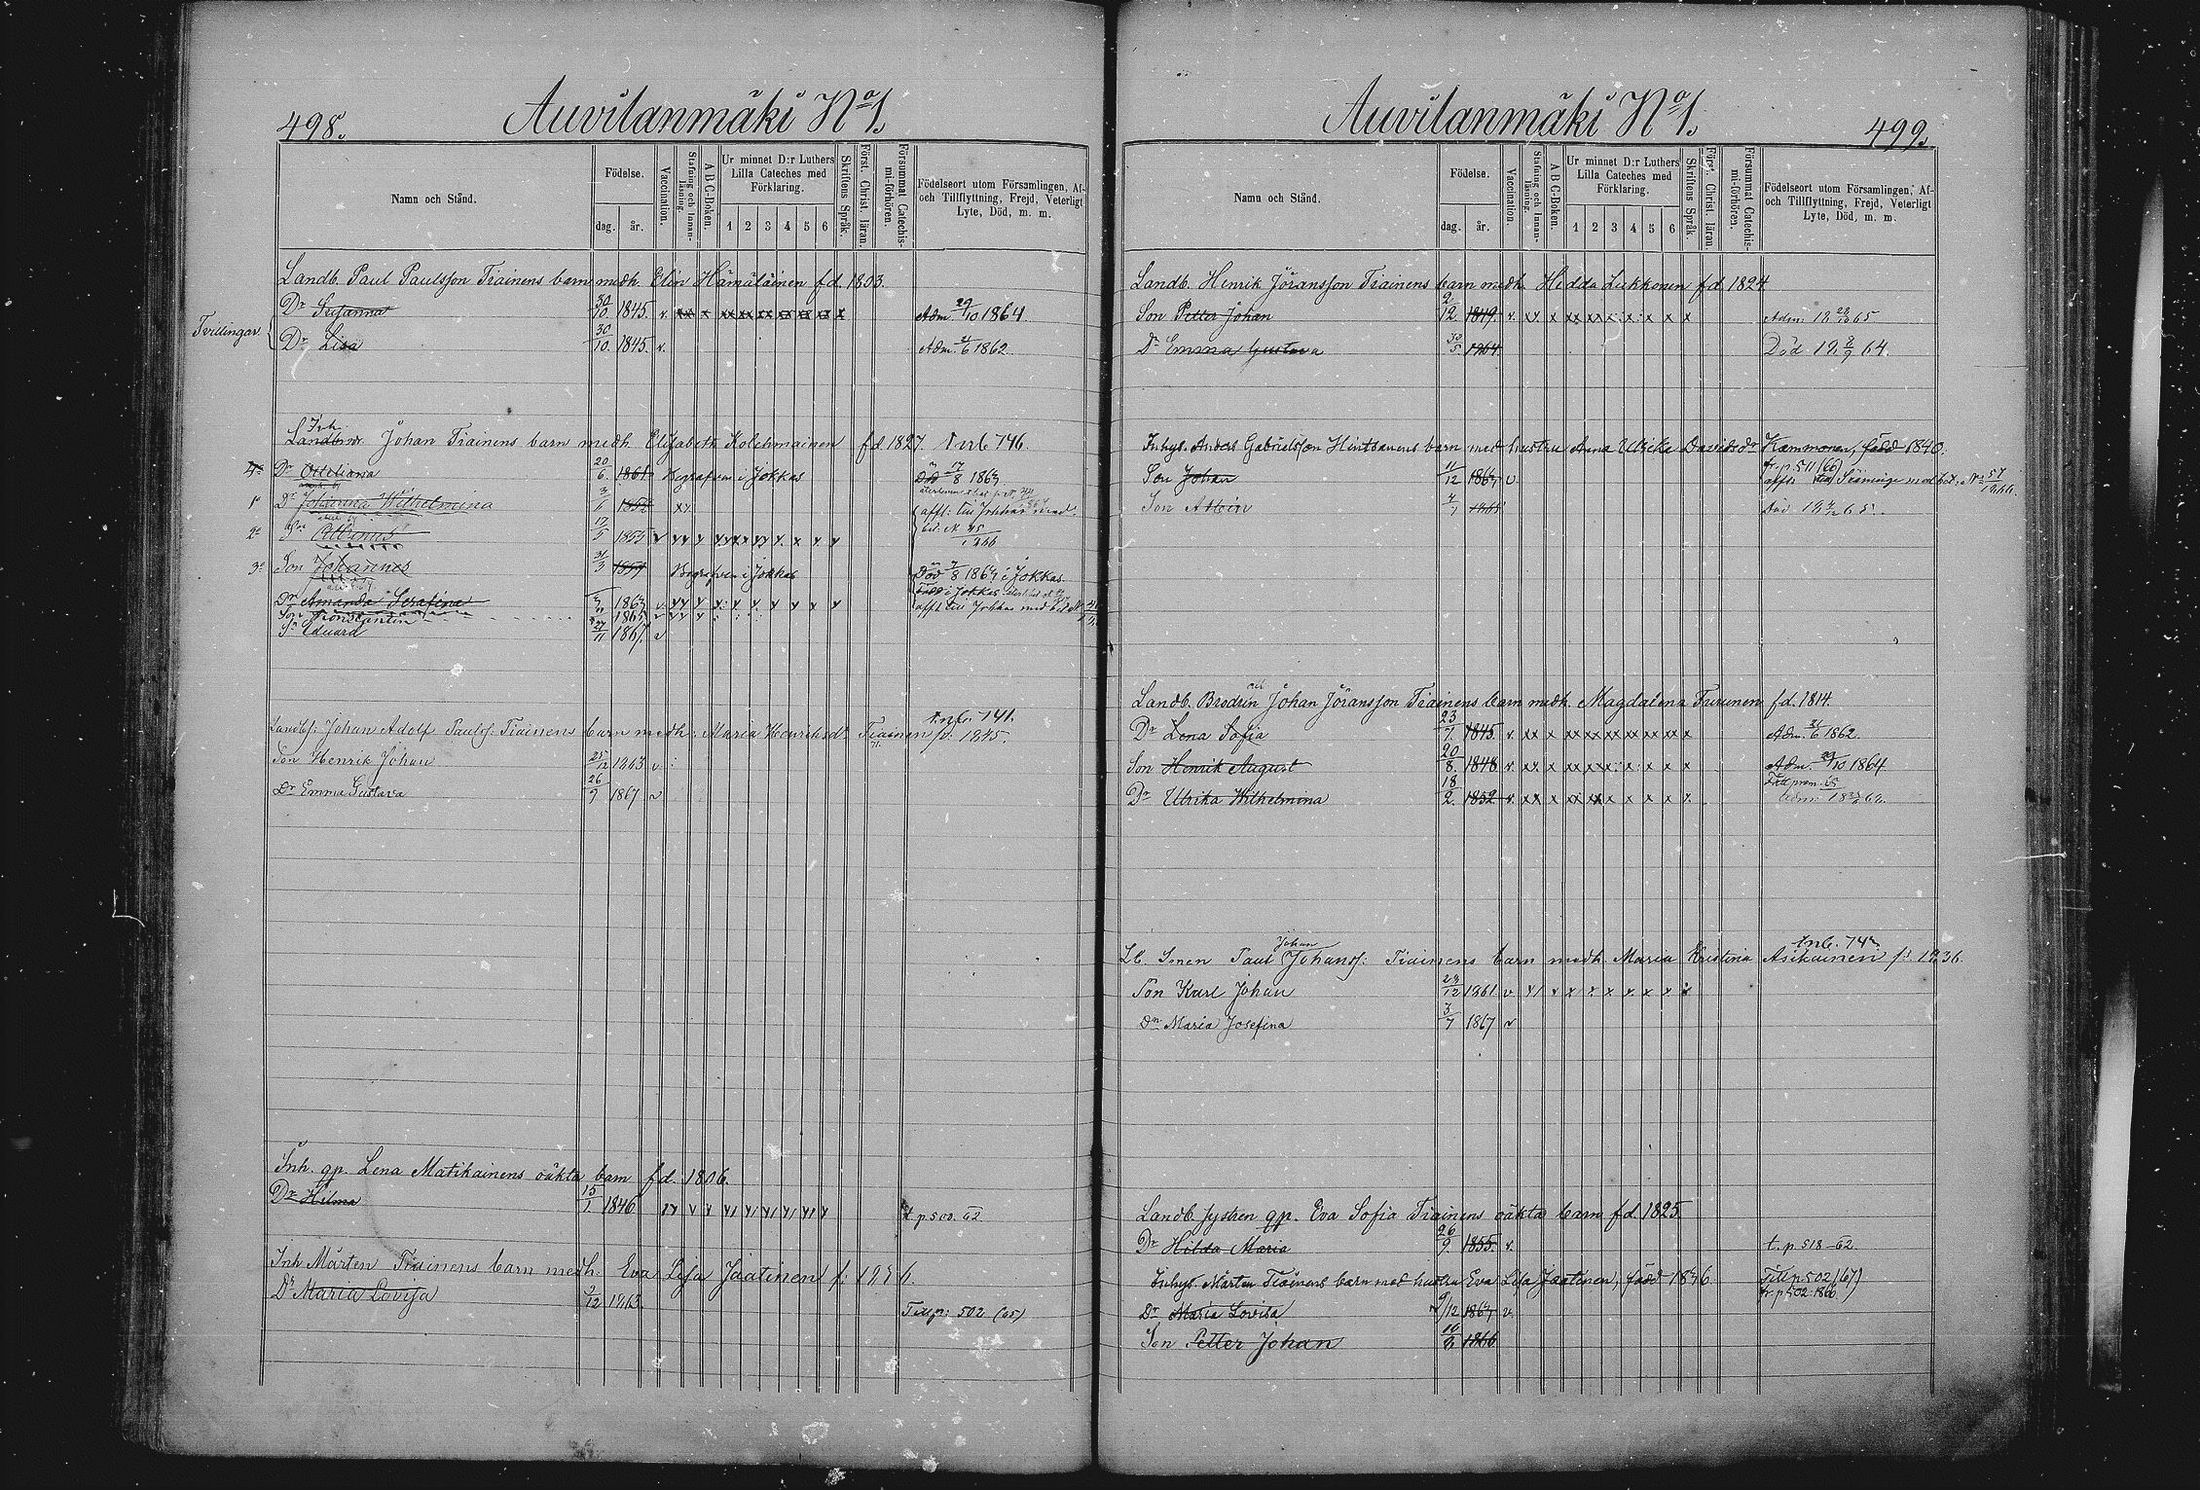 498.
Auvilanmäki No 1.
Namn och Stånd.
Födelse.
dag.
år.
Vaccination.
Stafning och Innan-läsning.
A B C-Boken.
Ur minnet D:r Luthers Lilla Cateches med Förklaring.
1 2 3 4 5 6
Skriftens Språk.
Först. Christ. läran.
Försummat Catechis-mi-förhören.
Födelseort utom Församlingen, Af- och Tillflyttning, Frejd, Veterligt Lyte, Död, m. m.
Landb. Paul Paulsson Tiainens barn medh. Elin Hämäläinen fd. 1803.
Tvillingar
Dr Susanna 30/10 1845. v. Adm. 29/10 1864
Dr Lisa 30/10. 1845. v. Adm. /6 1862
Inh.
Johan Tiainens barn medh. Elisabeth Kolehmainen fd. 1827. 746
4o Dr Ottiliana 20/6. 1861 Begrafven i Jokkas Död 17/8 1867
1o Dr Johanna Wilhelmina 1852 affl. till Jokkas med
2o Albinus 17/5 1855 v bet. N 45/1866
3o Son Johannes 31/3 1859 Begrafven i Jokkas Död 7/8 1867 i Jokkas
Dr Amanda Serafina 1863 affl till Jokkas med bet N
Son Konstantin 1865
Sn Eduard 27/11 1867. v
Inb. 741.
Landbs: Johan Adolf Paulss: Tiainens barn medh: Maria Henriksdr Tiainen f. 1845.
Son Henrik Johan 25/12 1863 v
Dr Emma Gustava 26/9 1867 v
Inh. qp. Lena Matikainens oäkta barn fd. 1806.
Dr Hilma 15/1 1846 t p 500. 62
Inh Mårten Tiainens barn medh: Eva Lisa Jaatinen f: 1836.
Dr Maria Lovisa /12 1863. Till p: 502 (65)
Auvilanmäki No 1.
499.
Namn och Stånd.
Födelse.
dag.
år.
Vaccination.
Stafning och Innan-läsning.
A B C-Boken.
Ur minnet D:r Luthers Lilla Cateches med Förklaring.
1 2 3 4 5 6
Skriftens Språk.
Först. Christ. läran.
Försummat Catechis-mi-förhören.
Födelseort utom Församlingen, Af- och Tillflyttning, Frejd, Veterligt Lyte, Död, m. m.
Landb. Henrik Jöransson Tiainens barn medh. Hedda Lukkonen fd 1824
Son Petter Johan 9/12 1849 v. Adm. 18 65
Dr Emma Gustava 30/5. 1864 Död 18 8/9 64.
Inhys. Anders Gabrielsson Hintsanens barn med hustru Anna Ulrika Davidsdr Kammonen, född 1840.
fr. p. 511 (66)
Son Johan 11/12 1863 v affl. till Säminge med bet. No 57/1866.
Son Albin 4/1 Död 18 65.
Landb. Brodrin Johan Jöransson Tiainens barn medh. Magdalena Turunen fd. 1814.
Dr Lena Sofia 23/7. 1845. v. Adm. /6 1862
Son Henrik August 20/8. 1848 v. Adm. 29/10 1864
Dr Ulrika Wilhelmina 18/2. 1852 v.
Inb. 742
Johan
Lb. Sonen Paul Johanss: Tiainens barn medh. Maria Kristina Asikainen f: 1836.
Son Karl Johan 24/12 1861 v
Dr Maria Josefina 3/7 1867 v
Landb systren qp. Eva Sofia Tiainens oäkta barn fd 1825.
Dr Hilda Maria 26/9. 1855. v. t. p 518-62.
Inhys. Mårten Tiainens barn med hustru Eva Lisa Jaatinen, född 1836 Till p 502 (67)
fr. p 502 1866.
Dr Maria Lovisa 9/12 1863 v.
Son Petter Johan 1866